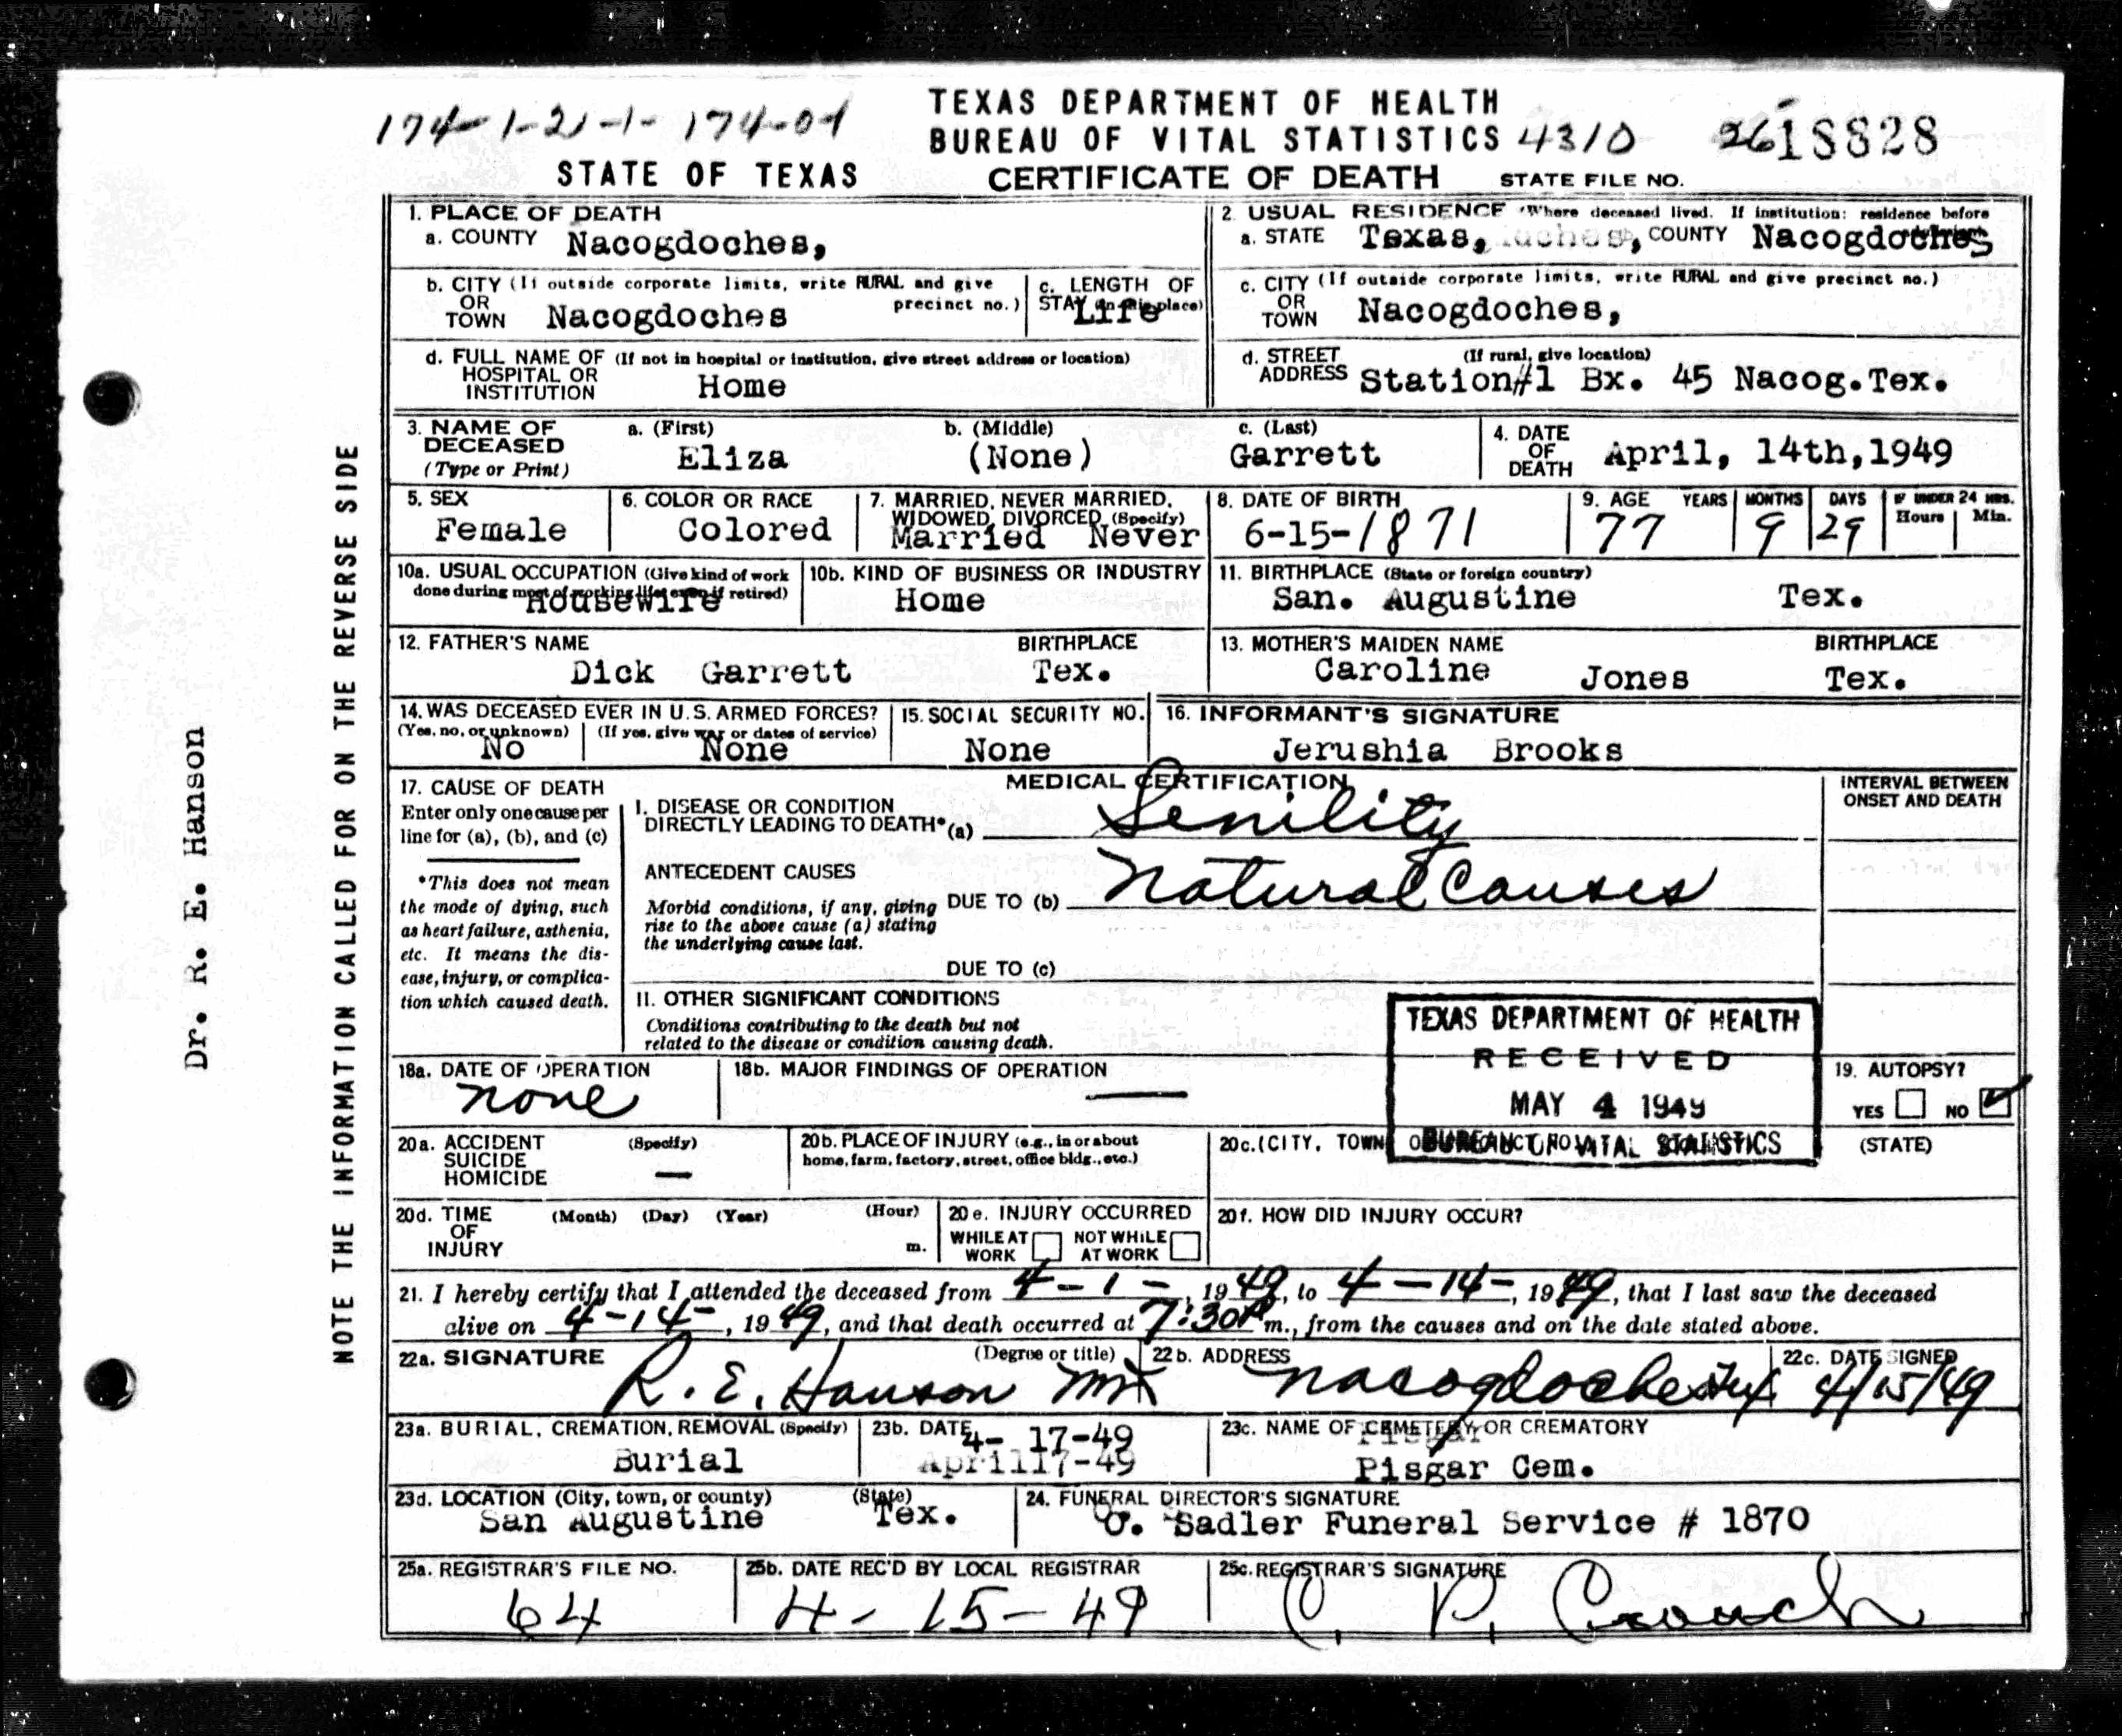 174-1-21-1- 174-01
TEXAS DEPARTMENT OF HEALTH
BUREAU OF VITAL STATISTICS 4310 2618828
STATE OF TEXAS CERTIFICATE OF DEATH STATE FILE NO.
1. PLACE OF DEATH
a. COUNTY Nacogdoches,
2. USUAL RESIDENCE (Where deceased lived. If institution: residence before
a. STATE Texas, COUNTY Nacogdoches
b. CITY (If outside corporate limits, write RURAL and give
OR precinct no.)
TOWN Nacogdoches
c. LENGTH OF
STAY (in this place)
Life
c. CITY (If outside corporate limits, write RURAL and give precinct no.)
OR
TOWN Nacogdoches,
d. FULL NAME OF (If not in hospital or institution, give street address or location)
HOSPITAL OR
INSTITUTION Home
d. STREET (If rural, give location)
ADDRESS Station#1 Bx. 45 Nacog.Tex.
3. NAME OF
DECEASED
(Type or Print)
a. (First)
Eliza
b. (Middle)
(None)
c. (Last)
Garrett
4. DATE
OF
DEATH April, 14th,1949
5. SEX
Female
6. COLOR OR RACE
Colored
7. MARRIED, NEVER MARRIED,
WIDOWED, DIVORCED (Specify)
Married Never
8. DATE OF BIRTH
6-15-1871
9. AGE YEARS MONTHS DAYS IF UNDER 24 HRS.
Hours Min.
77 9 29
10a. USUAL OCCUPATION (Give kind of work
done during most of working life, even if retired)
Housewife
10b. KIND OF BUSINESS OR INDUSTRY
Home
11. BIRTHPLACE (State or foreign country)
San. Augustine Tex.
12. FATHER'S NAME BIRTHPLACE
Dick Garrett Tex.
13. MOTHER'S MAIDEN NAME BIRTHPLACE
Caroline Jones Tex.
14. WAS DECEASED EVER IN U.S. ARMED FORCES?
(Yes, no, or unknown) (If yes, give war or dates of service)
No None
15. SOCIAL SECURITY NO.
None
16. INFORMANT'S SIGNATURE
Jerushia Brooks
17. CAUSE OF DEATH
Enter only one cause per
line for (a), (b), and (c)
*This does not mean
the mode of dying, such
as heart failure, asthenia,
etc. It means the dis-
ease, injury, or complica-
tion which caused death.
MEDICAL CERTIFICATION
I. DISEASE OR CONDITION
DIRECTLY LEADING TO DEATH*(a) Senility
ANTECEDENT CAUSES
Morbid conditions, if any, giving DUE TO (b) Natural Causes
rise to the above cause (a) stating
the underlying cause last.
DUE TO (c)
II. OTHER SIGNIFICANT CONDITIONS
Conditions contributing to the death but not
related to the disease or condition causing death.
INTERVAL BETWEEN
ONSET AND DEATH
TEXAS DEPARTMENT OF HEALTH
RECEIVED
MAY 4 1949
BUREAU OF VITAL STATISTICS
18a. DATE OF OPERATION
none
18b. MAJOR FINDINGS OF OPERATION
—
19. AUTOPSY?
YES NO
20a. ACCIDENT (Specify)
SUICIDE
HOMICIDE —
20b. PLACE OF INJURY (e.g., in or about
home, farm, factory, street, office bldg., etc.)
20c. (CITY, TOWN (STATE)
20d. TIME (Month) (Day) (Year) (Hour)
OF
INJURY m.
20e. INJURY OCCURRED
WHILE AT NOT WHILE
WORK AT WORK
20f. HOW DID INJURY OCCUR?
21. I hereby certify that I attended the deceased from 4-1-, 1949, to 4-14-, 1949, that I last saw the deceased
alive on 4-14-, 1949, and that death occurred at 7:30P m., from the causes and on the date stated above.
22a. SIGNATURE (Degree or title)
R. E. Hanson MD
22b. ADDRESS
Nacogdoches Tex
22c. DATE SIGNED
4/15/49
23a. BURIAL, CREMATION, REMOVAL (Specify)
Burial
23b. DATE
4- 17-49
April17-49
23c. NAME OF CEMETERY OR CREMATORY
Pisgar Cem.
23d. LOCATION (City, town, or county) (State)
San Augustine Tex.
24. FUNERAL DIRECTOR'S SIGNATURE
Sadler Funeral Service # 1870
25a. REGISTRAR'S FILE NO.
64
25b. DATE REC'D BY LOCAL REGISTRAR
4-15-49
25c. REGISTRAR'S SIGNATURE
C. P. Crouch
NOTE THE INFORMATION CALLED FOR ON THE REVERSE SIDE
Dr. R. E. Hanson